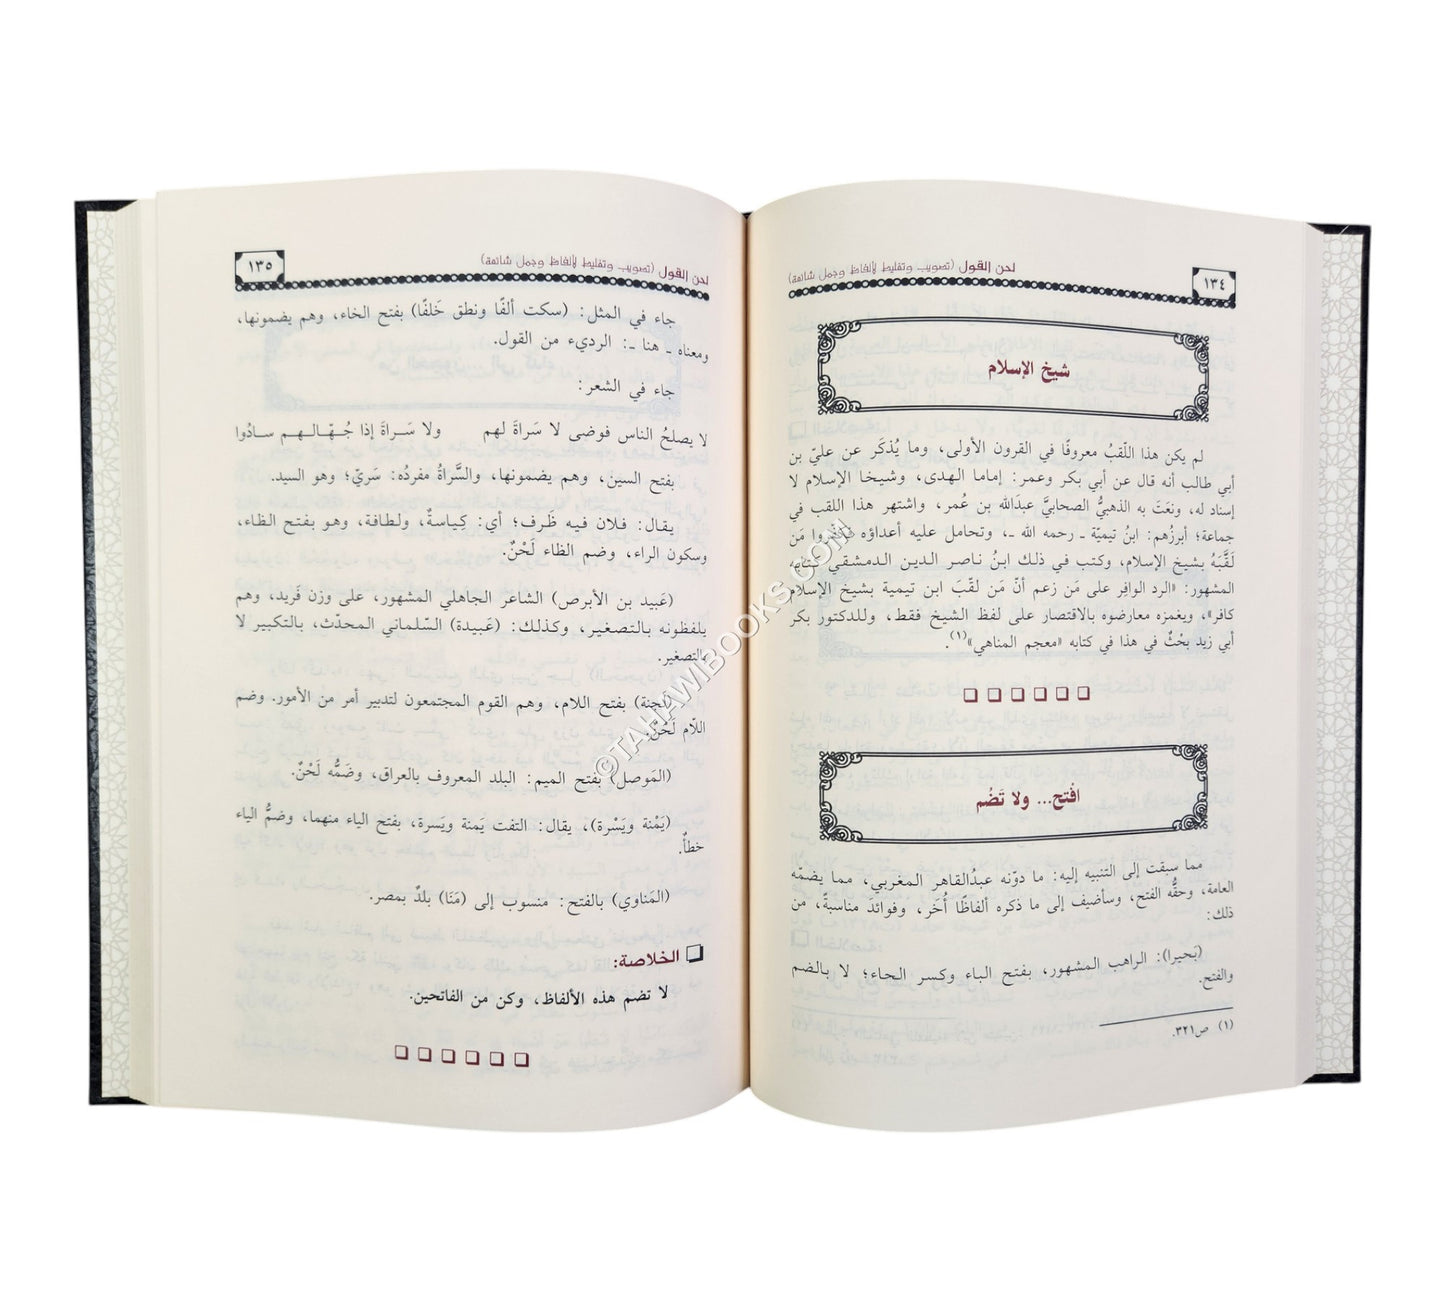 ١٣٤
لحن القول (تصويب وتغليط لألفاظ وجمل شائعة)
شيخ الإسلام
لم يكن هذا اللّقبُ معروفًا في القرون الأولى، وما يُذكَر عن عليّ بن
أبي طالب أنه قال عن أبي بكر وعمر: إماما الهدى، وشيخا الإسلام لا
إسناد له، ونعَتَ به الذهبيُّ الصحابيَّ عبدَالله بن عُمر، واشتهر هذا اللقب في
جماعة؛ أبرزُهم: ابنُ تيميّة ـ رحمه الله ـ، وتحامل عليه أعداؤه فكفروا مَن
لَقَّبَهُ بشيخ الإسلام، وكتب في ذلك ابنُ ناصر الدين الدمشقي كتابه
المشهور: «الرد الوافِر على مَن زعم أنّ مَن لقّبَ ابن تيمية بشيخ الإسلام
كافر»، ويغمزه معارضوه بالاقتصار على لفظ الشيخ فقط، وللدكتور بكر
أبي زيد بحْثٌ في هذا في كتابه «معجم المناهي»(١).
افْتح... ولا تَضُم
مما سبقت إلى التنبيه إليه: ما دوّنه عبدُالقاهر المغربي، مما يضمّه
العامة، وحقُّه الفتح، وسأضيف إلى ما ذكره ألفاظًا أُخَر، وفوائدَ مناسبةً، من
ذلك:
(بَحيرا): الراهب المشهور، بفتح الباء وكسر الحاء؛ لا بالضم
والفتح.
(١) ص٣٢١.
١٣٥
لحن القول (تصويب وتغليط لألفاظ وجمل شائعة)
جاء في المثل: (سكت ألفًا ونطق خَلفًا) بفتح الخاء، وهم يضمونها،
ومعناه ـ هنا ـ: الرديء من القول.
جاء في الشعر:
لا يصلحُ الناس فوضى لا سَراةَ لهم ولا سَراةَ إذا جُهّالـهـم سادُوا
بفتح السين، وهم يضمونها، والسَّراةُ مفردُه: سَريّ؛ وهو السيد.
يقال: فلان فيه ظَرف؛ أي: كِياسةٌ، ولطافة، وهو بفتح الظاء،
وسكون الراء، وضم الظاء لَحْنٌ.
(عَبيد بن الأبرص) الشاعر الجاهلي المشهور، على وزن فَريد، وهم
يلفظونه بالتصغير، وكذلك: (عَبيدة) السّلماني المحدّث، بالتكبير لا
بالتصغير.
(لَجنة) بفتح اللام، وهم القوم المجتمعون لتدبير أمر من الأمور. وضم
اللّام لَحْنٌ.
(المَوصل) بفتح الميم: البلد المعروف بالعراق، وضَمُّه لَحْنٌ.
(يَمْنة ويَسْرة)، يقال: التفت يَمنة ويَسرة، بفتح الياء منهما، وضمُّ الياء
خطأٌ.
(المَناوي) بالفتح: منسوب إلى (مَنَا) بلدٌ بمصر.
الخلاصة:
لا تضم هذه الألفاظ، وكن من الفاتحين.
©TAHAWIBOOKS.COM